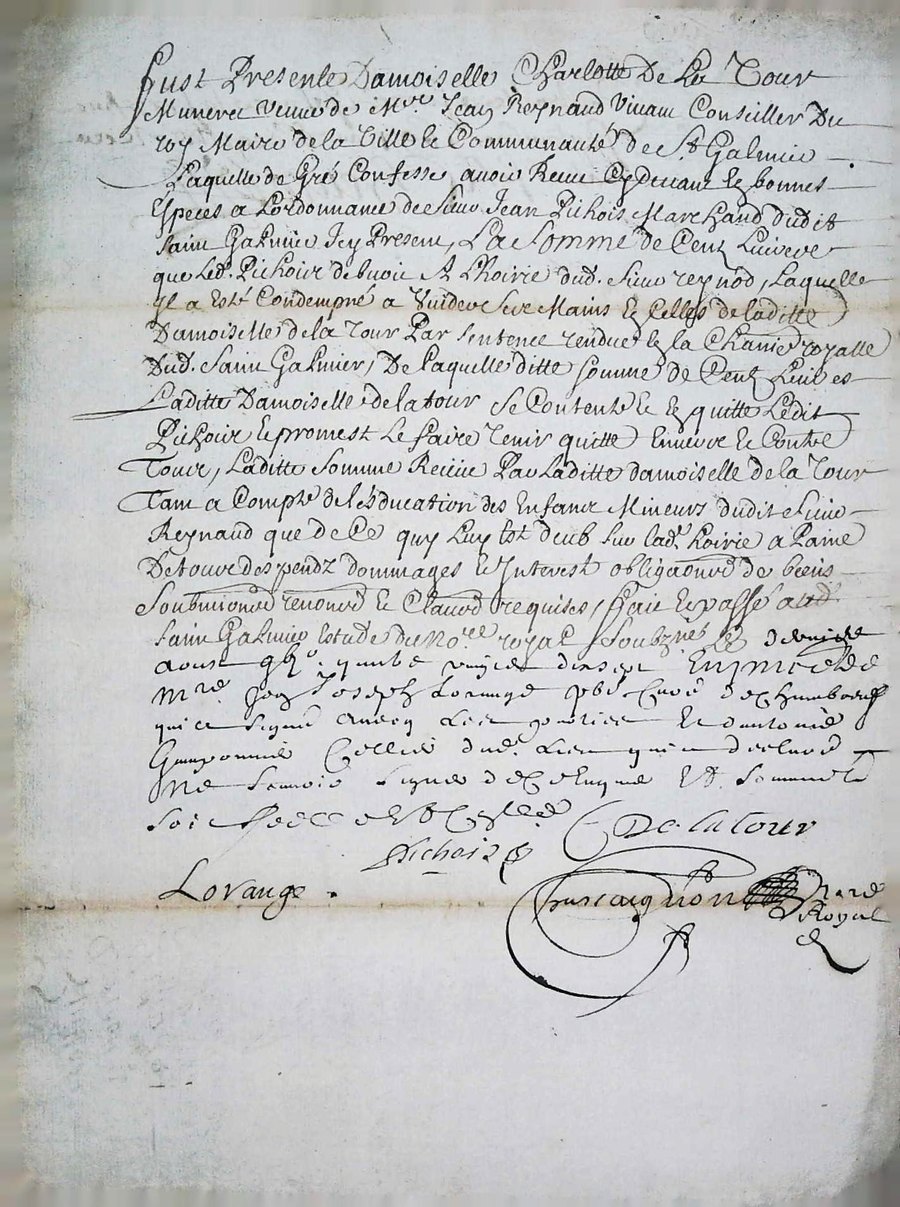 Fust Presente Damoiselle Charlotte De La Tour
Muneret veuve de Mre Jean Reynaud vivant Conseiller Du
roy Maire de la Ville et Communauté de St Galmier
Laquelle de Gré Confesse avoir Receu Cydevant et bonnes
Especes a Lordonnance de Sieur Jean Pichois Marchand dudit
Saint Galmier Icy Present, La Somme de Cent Luivres
que Led. Pichoir debvoit A Lhoirie dud. Sieur reynod, Laquelle
Il a Esté Condempné a Vuider Ses Mains Et Celles de laditte
Damoiselle de la Tour Par Sentence rendue et la Chanie royalle
Dud. Saint Galmier, De Laquelle ditte Somme de Cent Luivres
Laditte Damoiselle de la tour Se Contente Et Et quitte Ledit
Pichoir et promest Le faire Tenir quitte Envers Et Contre
Tous, Laditte Somme Reciue Par Laditte damoiselle de la Tour
Tant a Compte de léducation des Enfans Mineurs dudit Sieur
Reynaud que de Ce quy Luy Est deub Sur lad. hoirie a Paine
De touts despendz dommages et Interest obligaonnd de biens
Soubmionnd renonnd Et Clausd requises, Faict Et passé aud.
Saint Galmier Estude du Nore royal Soubzné Le dernier
aoust
Mre Joseph Lorange pbre Curé de Chamboeuf
qui a signé avecq Les parties Et d'antoine
Cellier dud. Lieu qui a declaré
Ne Scavoir Signer de Ce Enquis Et Sommé
Delatour
Pichois
Lorange
Nore
Royal